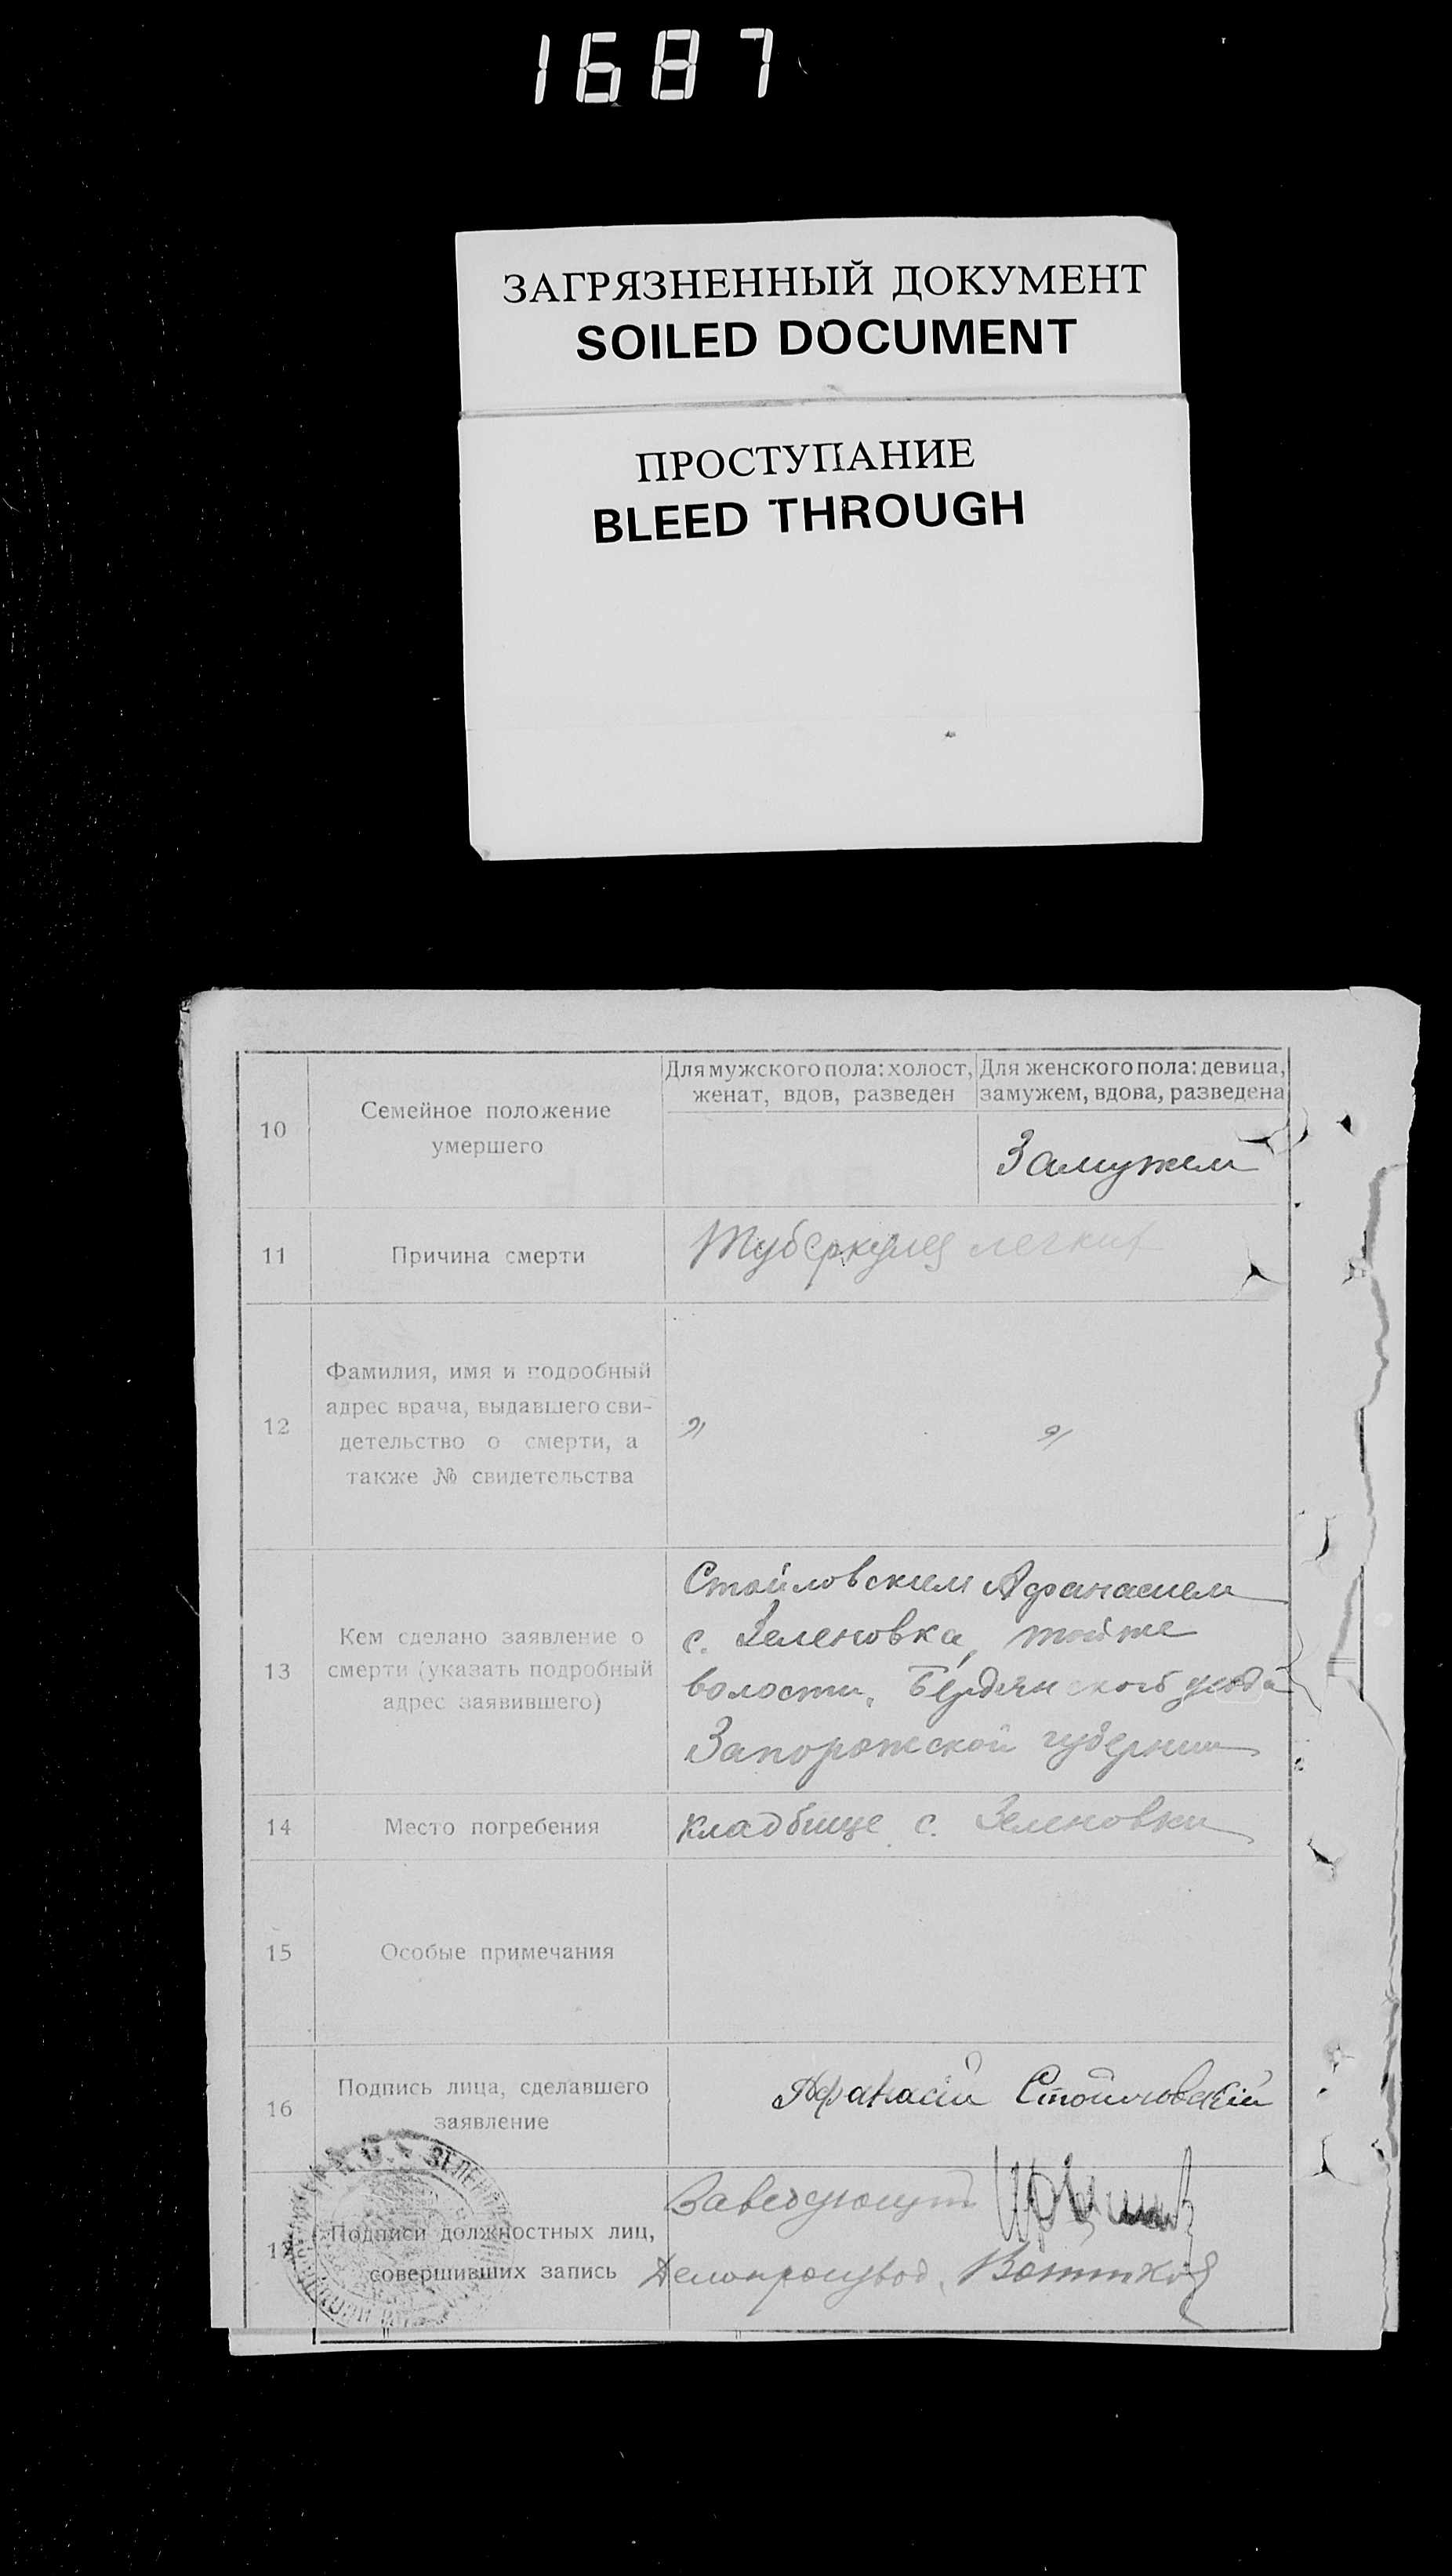 1687
ЗАГРЯЗНЕННЫЙ ДОКУМЕНТ
SOILED DOCUMENT
ПРОСТУПАНИЕ
BLEED THROUGH
10
Семейное положение
умершего
Для мужского пола: холост,
женат, вдов, разведен
Для женского пола: девица,
замужем, вдова, разведена
Замужем
11
Причина смерти
Туберкулез легких
12
Фамилия, имя и подробный
адрес врача, выдавшего сви-
детельство о смерти, а
также № свидетельства
" "
13
Кем сделано заявление о
смерти (указать подробный
адрес заявившего)
Стойловским Афанасием
с. Зеленовка, тойже
волости, Бердянского уезда
Запорожской губернии
14
Место погребения
кладбище с. Зеленовки
15
Особые примечания
16
Подпись лица, сделавшего
заявление
Афанасій Стойловскій
17
Подписи должностных лиц,
совершивших запись
Заведующий
Делопроизвод.